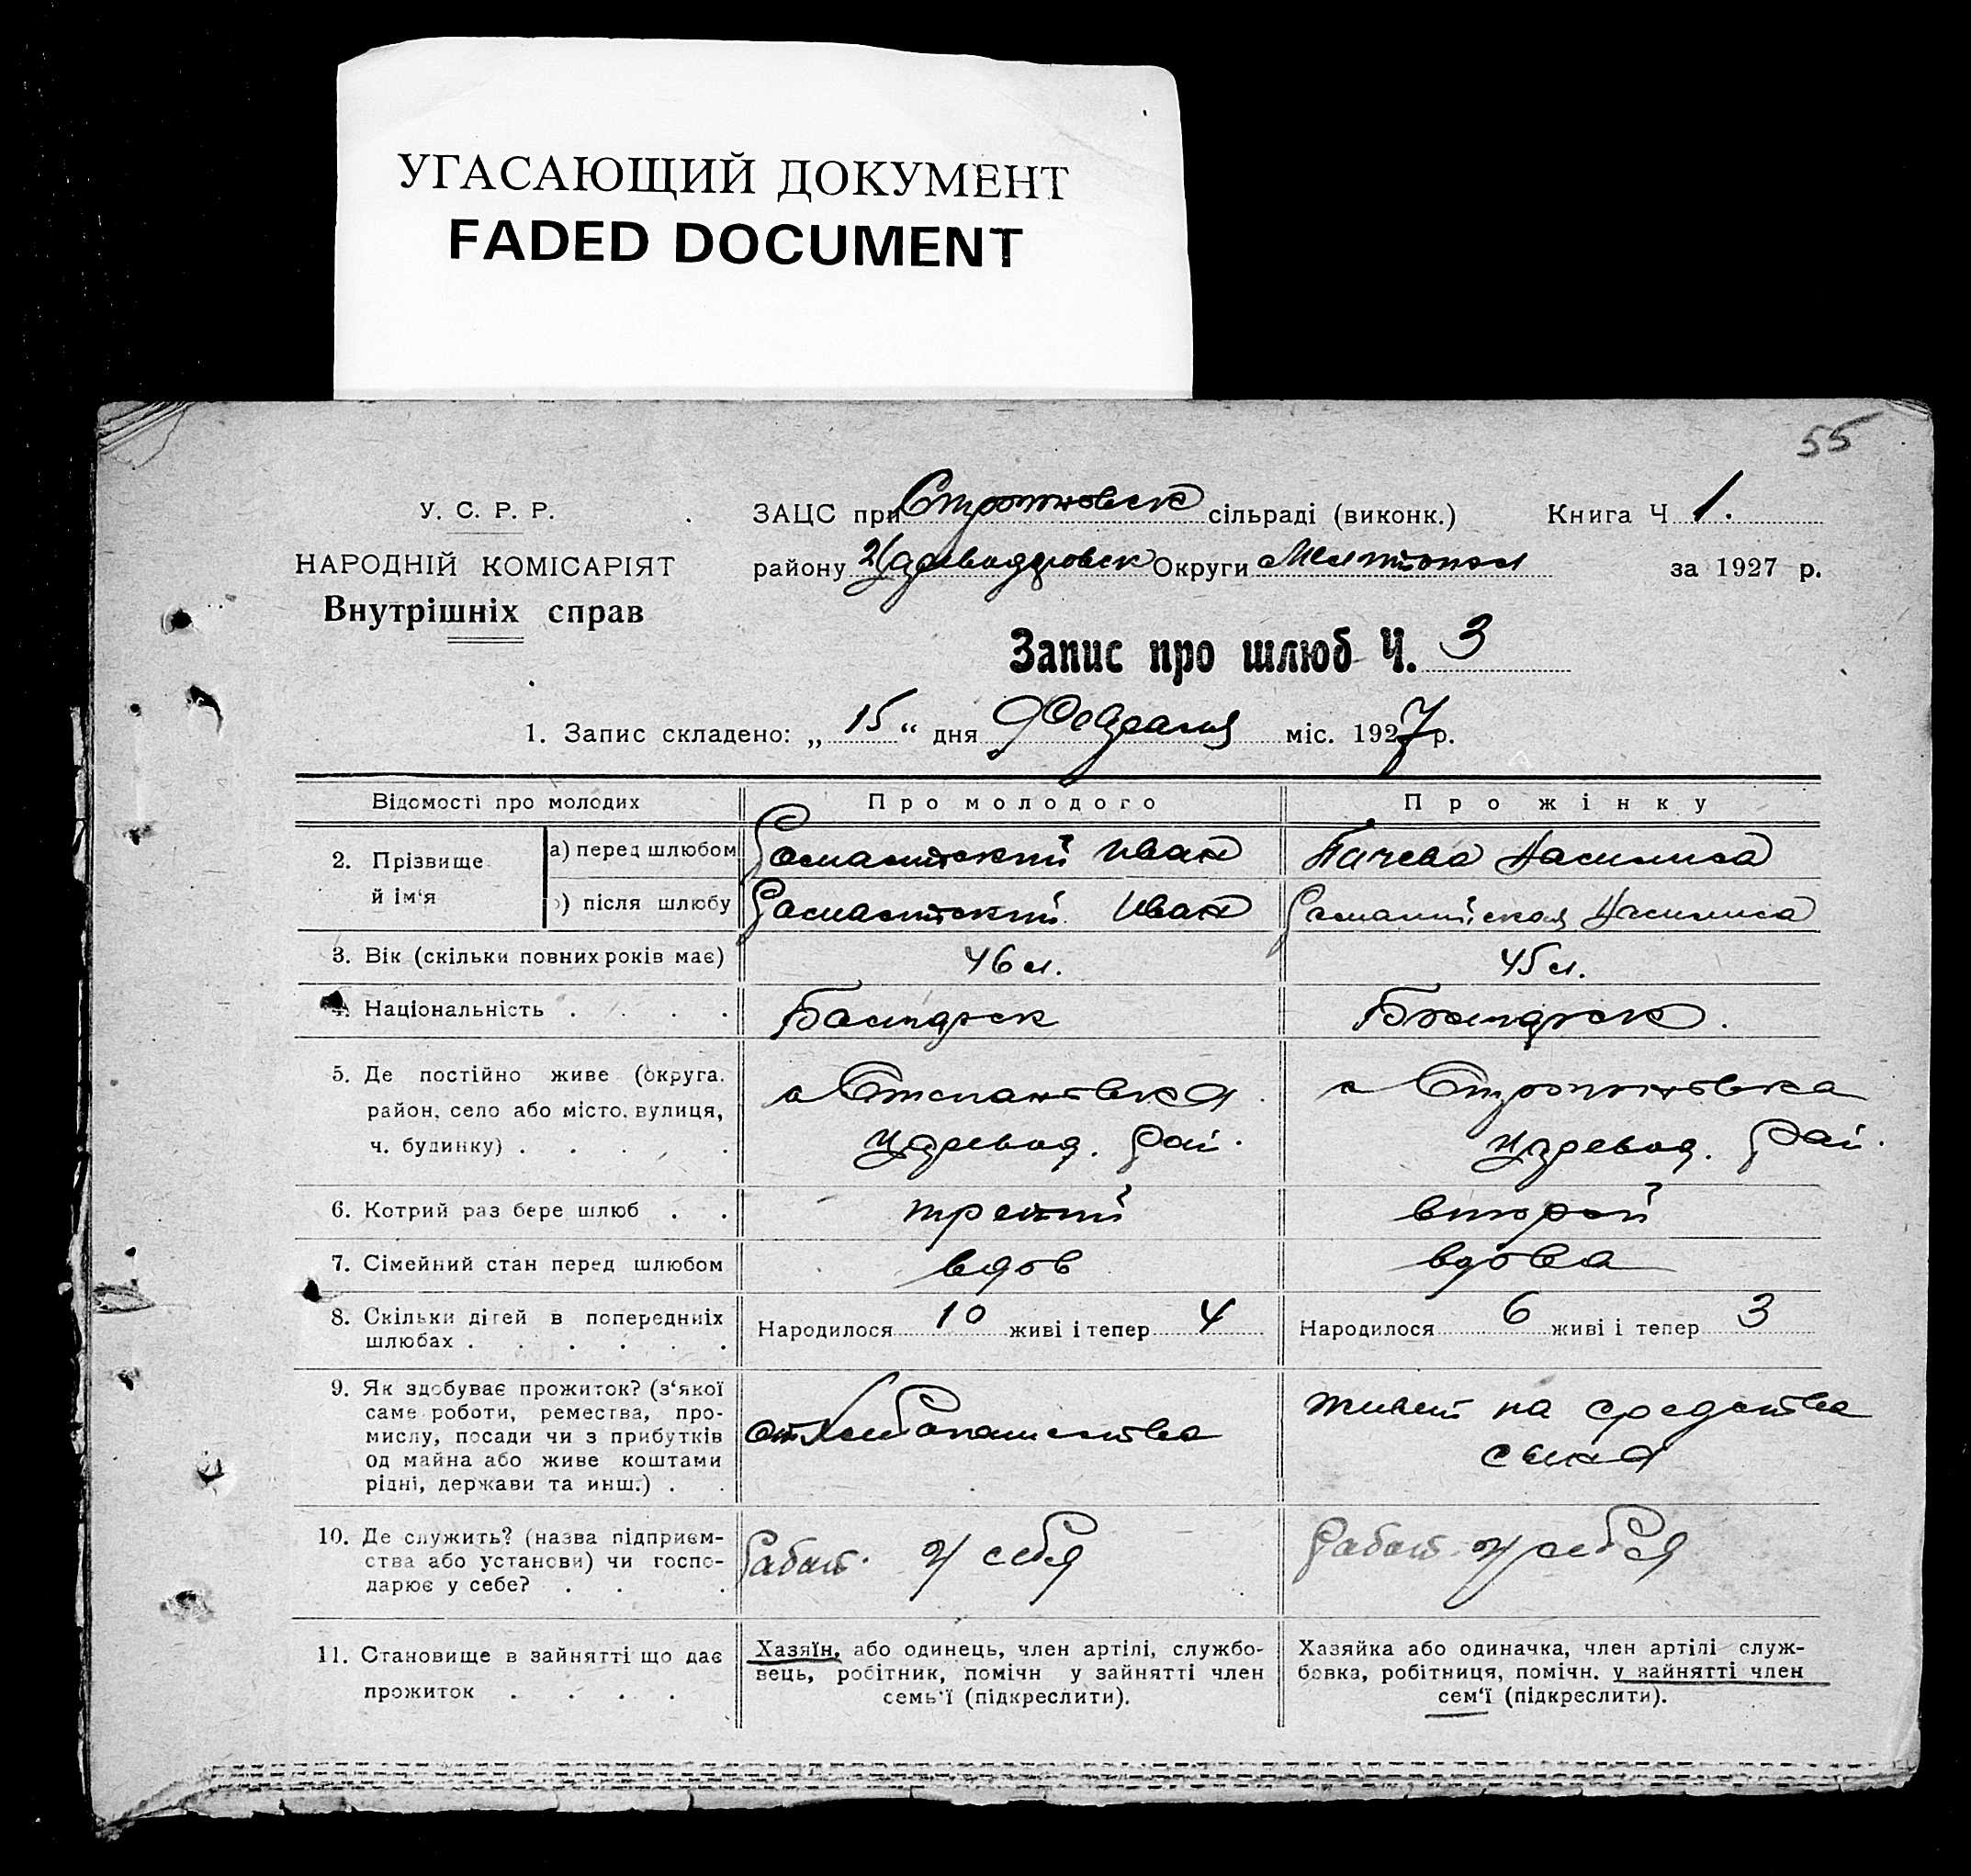 УГАСАЮЩИЙ ДОКУМЕНТ
FADED DOCUMENT
55
У. С. Р. Р.
НАРОДНІЙ КОМІСАРІЯТ
Внутрішніх справ
ЗАЦС при сільраді (виконк.) Книга Ч 1.
району Округи Мелитопол за 1927 р.
Запис про шлюб Ч. 3
1. Запис складено: „ 15 “ дня Февраля міс. 1927 р.
Відомості про молодих
Про молодого
Про жінку
2. Прізвище й ім‘я
а) перед шлюбом
Иван
Василиса
) після шлюбу
Иван
Василиса
3. Вік (скільки повних років має)
46 л.
45 л.
4. Національність . . . .
Болгарск
Болгарск.
5. Де постійно живе (округа, район, село або місто, вулиця, ч. будинку) . . . . .
с Степановка
Царевод. рай.
с
Царевод. рай.
6. Котрий раз бере шлюб . .
третий
второй
7. Сімейний стан перед шлюбом
вдов
вдова
8. Скільки дітей в попередніх шлюбах . . . . . .
Народилося 10 живі і тепер 4
Народилося 6 живі і тепер 3
9. Як здобуває прожиток? (з‘якої
саме роботи, ремества, про-
мислу, посади чи з прибутків
од майна або живе коштами
рідні, держави та инш.) . .
от Хлебопашества
живет на средства
сына
10. Де служить? (назва підприєм-
ства або установи) чи госпо-
дарює у себе? . . .
Работ. у себя
Работ. у себя
11. Становище в зайнятті що дає
прожиток . . . .
Хазяїн, або одинець, член артілі, службо-
вець, робітник, помічн у зайнятті член
семь‘ї (підкреслити).
Хазяйка або одиначка, член артілі служ-
бовка, робітниця, помічн. у зайнятті член
сем‘ї (підкреслити).